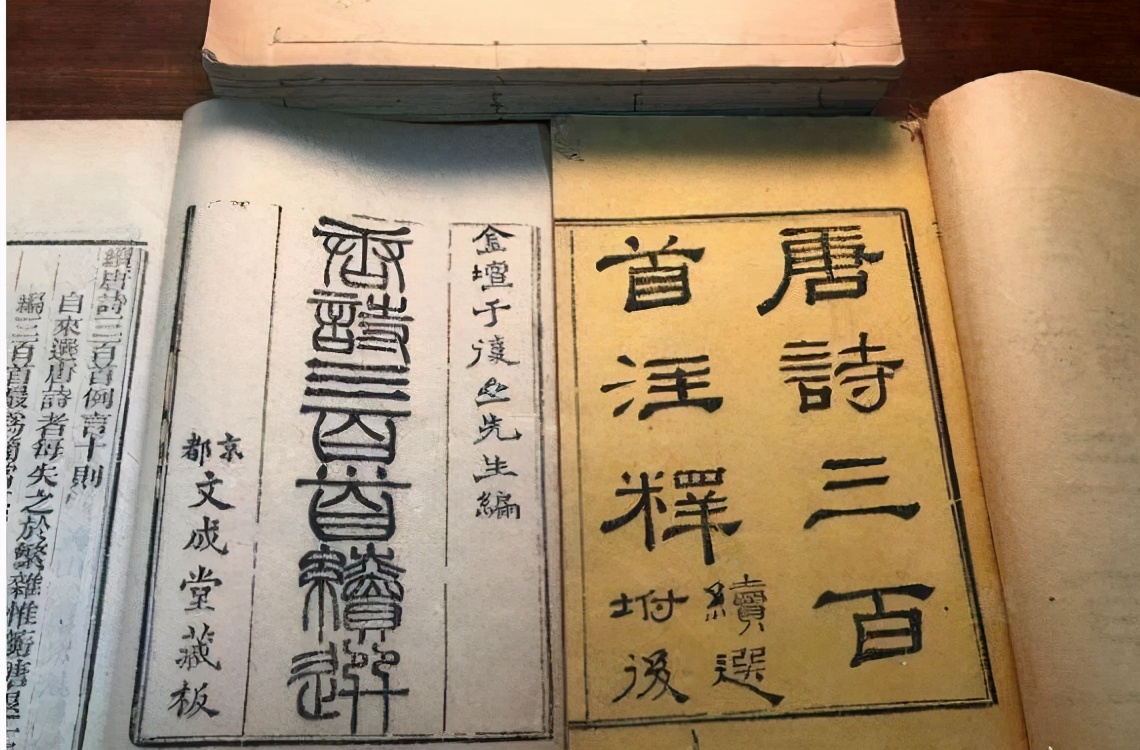 唐詩三百
首注釋
續選
坿後
金壇于復亝先生編
唐詩三百首續選
京都
文成堂藏板
續唐詩三百首例言十則
自來選唐詩者每失之於繁雜惟蘅塘退
編三百首最爲簡